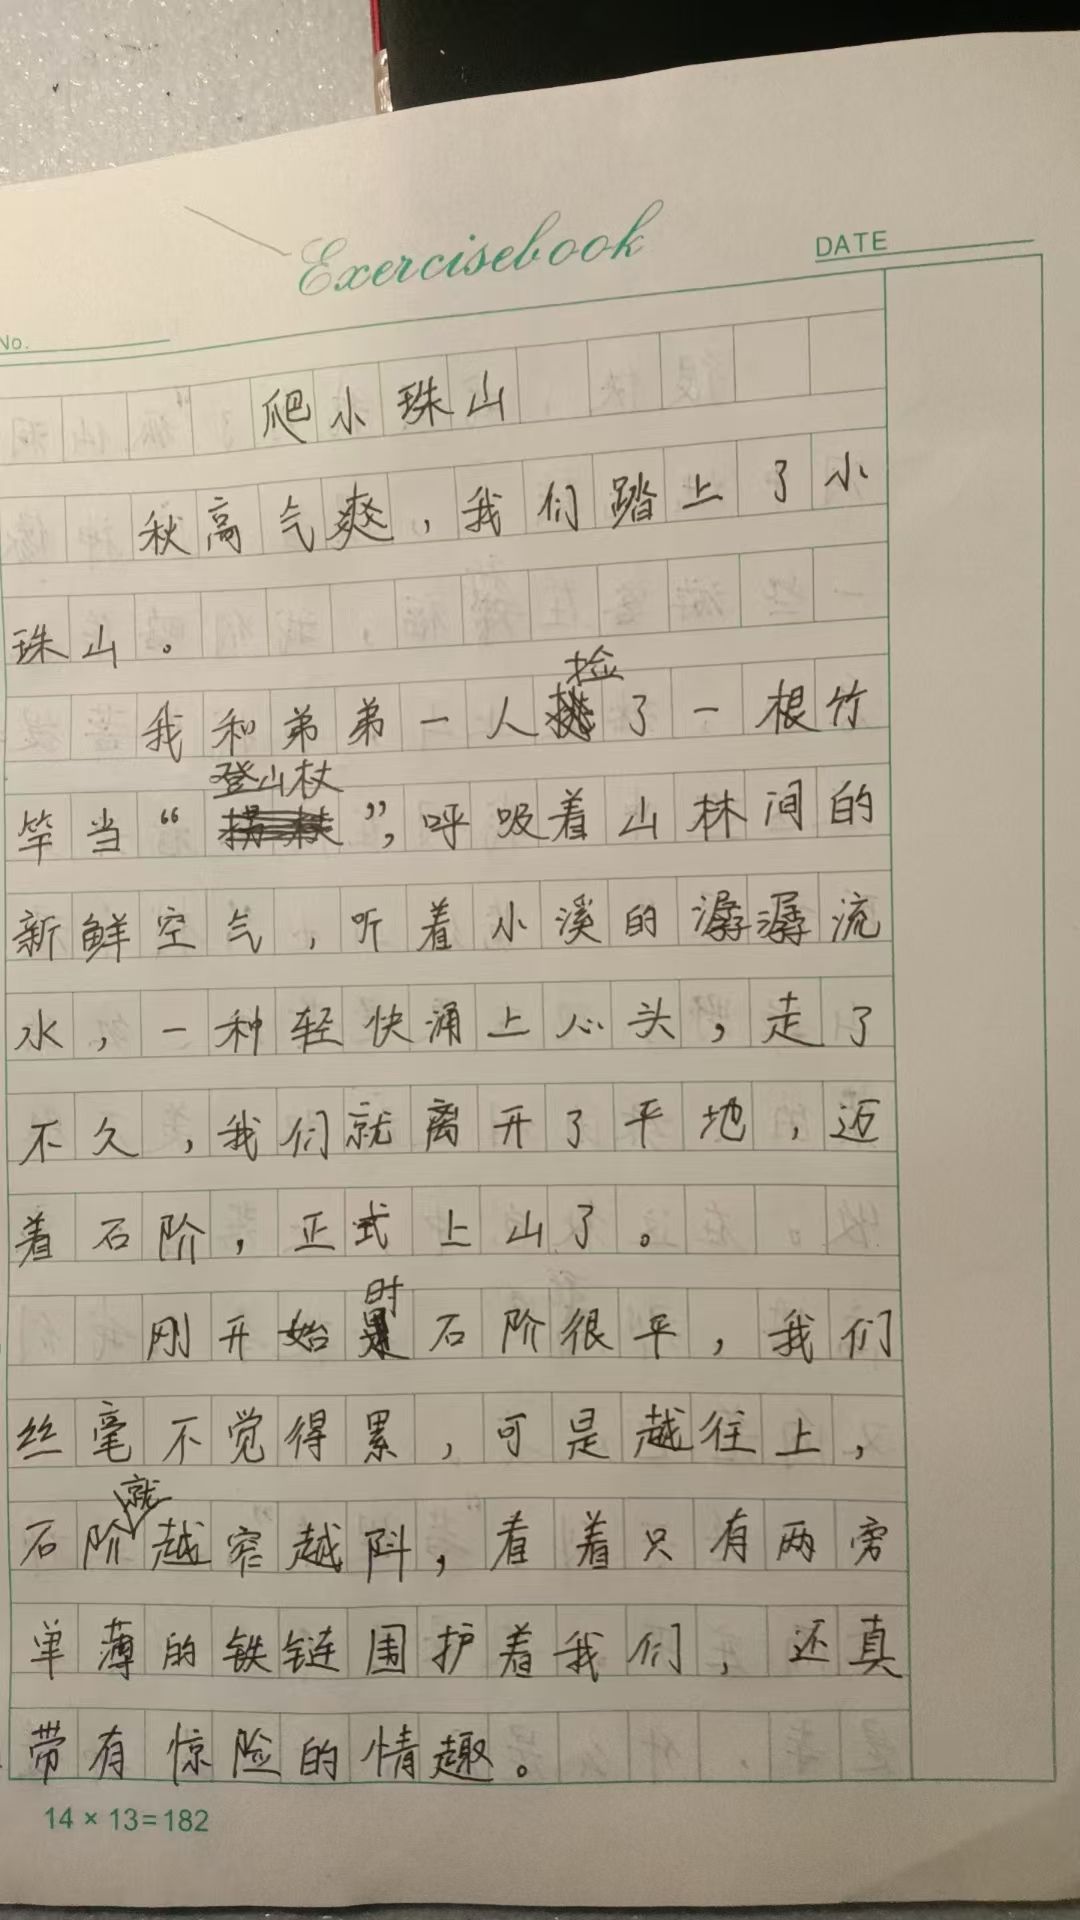 Exercisebook
DATE
No.
爬小珠山
秋高气爽，我们踏上了小
珠山。
我和弟弟一人捡了一根竹
竿当“登山杖”，呼吸着山林间的
新鲜空气，听着小溪的潺潺流
水，一种轻快涌上心头，走了
不久，我们就离开了平地，迈
着石阶，正式上山了。
刚开始时石阶很平，我们
丝毫不觉得累，可是越往上，
石阶就越窄越陡，看着只有两旁
单薄的铁链围护着我们，还真
带有惊险的情趣。
14×13=182